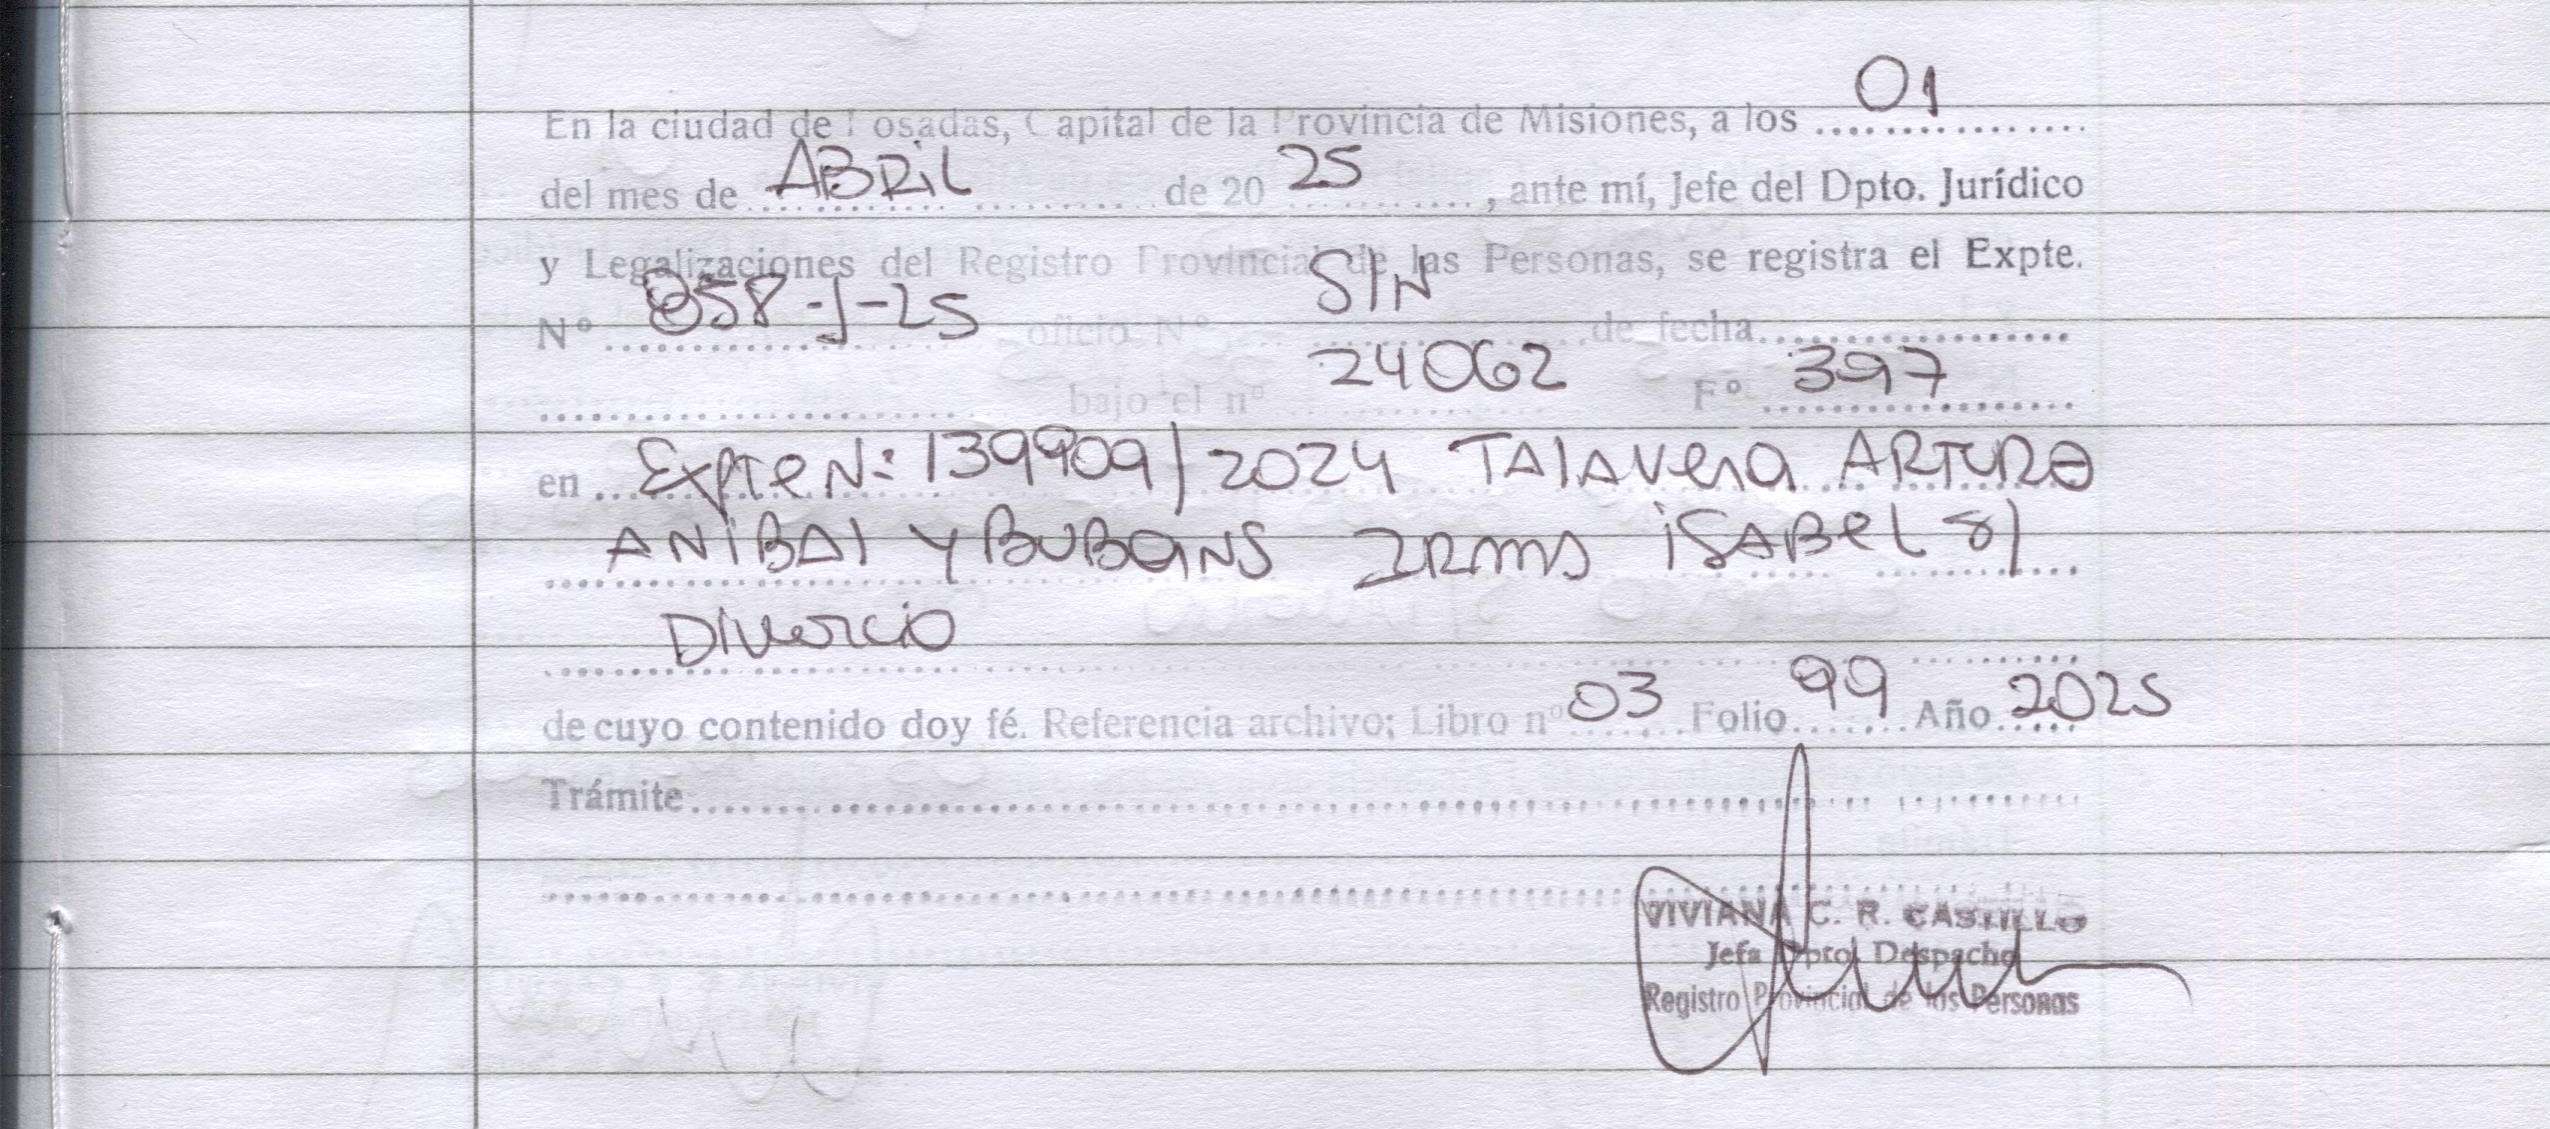 En la ciudad de Posadas, Capital de la Provincia de Misiones, a los 01
del mes de ABRiL de 20 25, ante mí, Jefe del Dpto. Jurídico
y Legalizaciones del Registro Provincial de las Personas, se registra el Expte.
Nº 858-J-25 oficio Nº S/N de fecha
bajo el nº 24062 Fº 397
en Expte N: 139909/2024 TALAVera ARTURO
ANiBAL Y BUBANS IRMA iSABeL S/
Divorcio
de cuyo contenido doy fé. Referencia archivo; Libro nº 03 Folio 99 Año 2025
Trámite
VIVIANA C. R. CASTILLO
Jefa Dpto. Despacho
Registro Provincial de las Personas